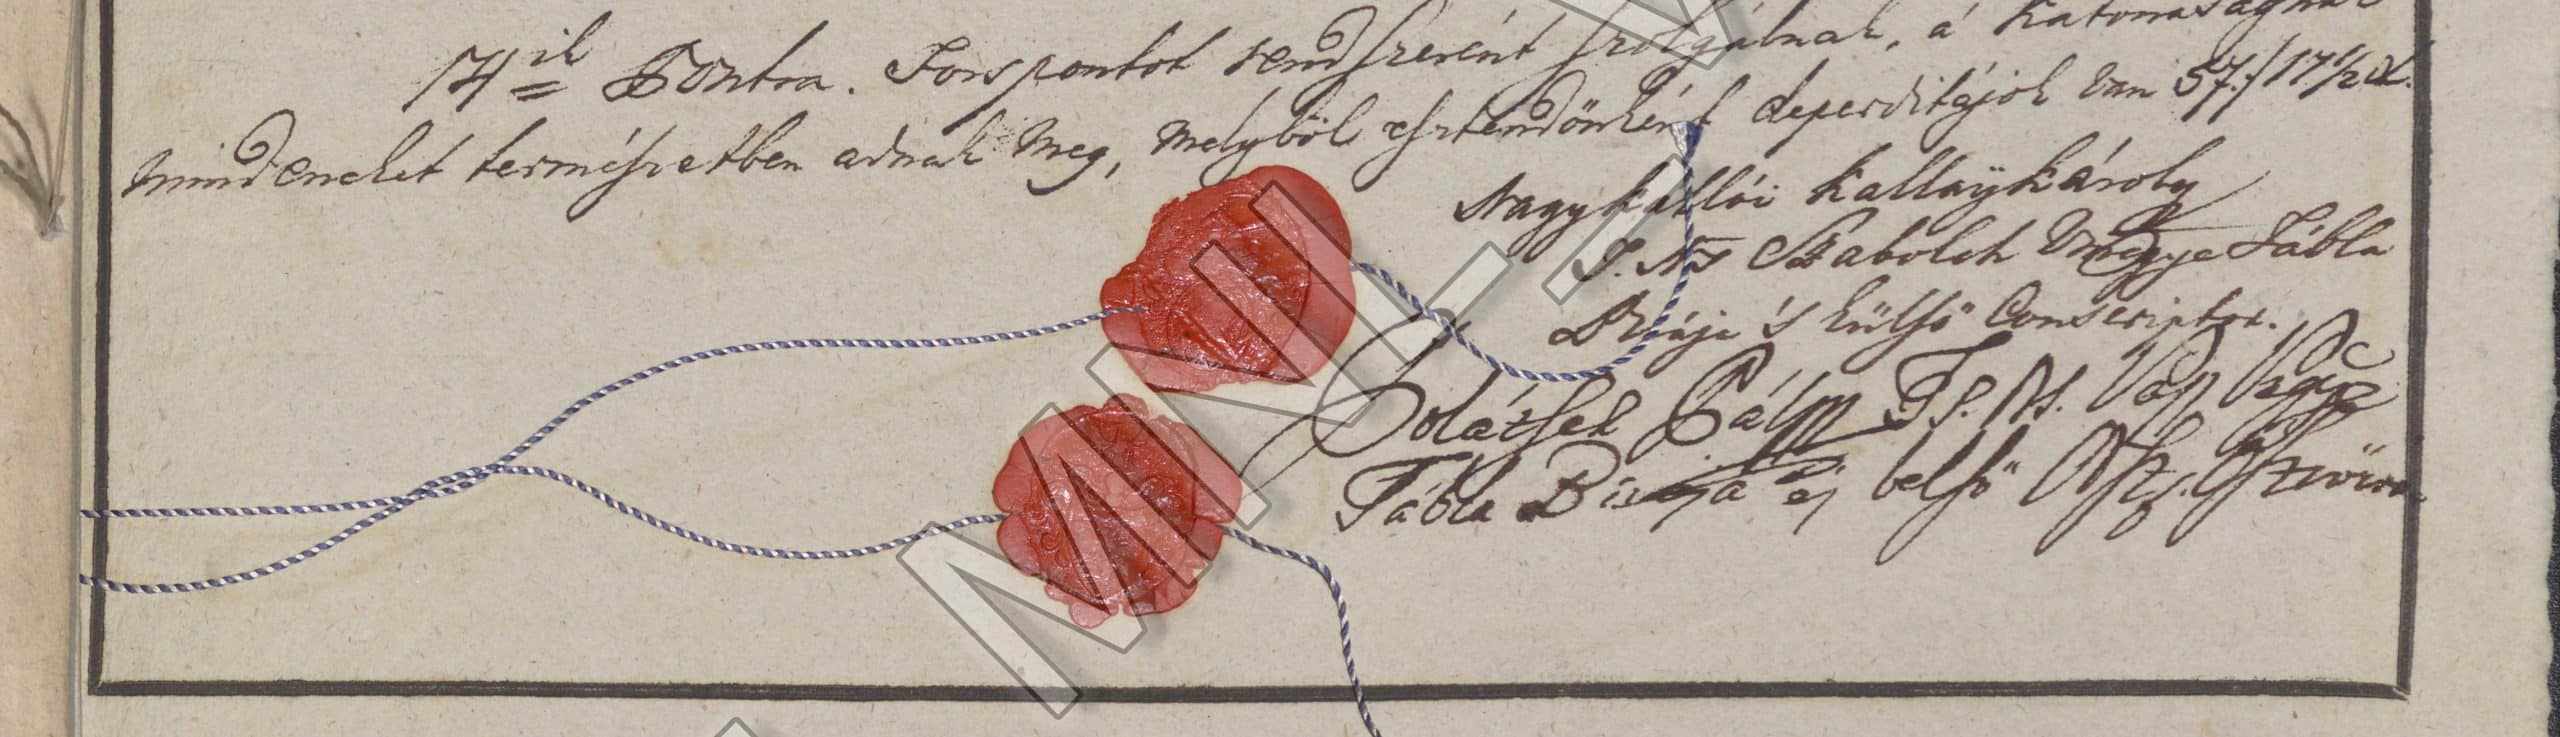 14ik Pontra. Forspontot rendszerént szolgálnak, á Katonaságnak
mindeneket természetben adnak meg, melyböl esztendönként deperditájok van 57.f 17½ X.
Nagy Kállói Kállaÿ Károly
T. Ns Szabolch Vmegye Tábla
Birája 's külsö Conscriptor.
Bolátsek Pál Ts. Ns. Vas Vgye
Tábla Birája és belsö
MNL